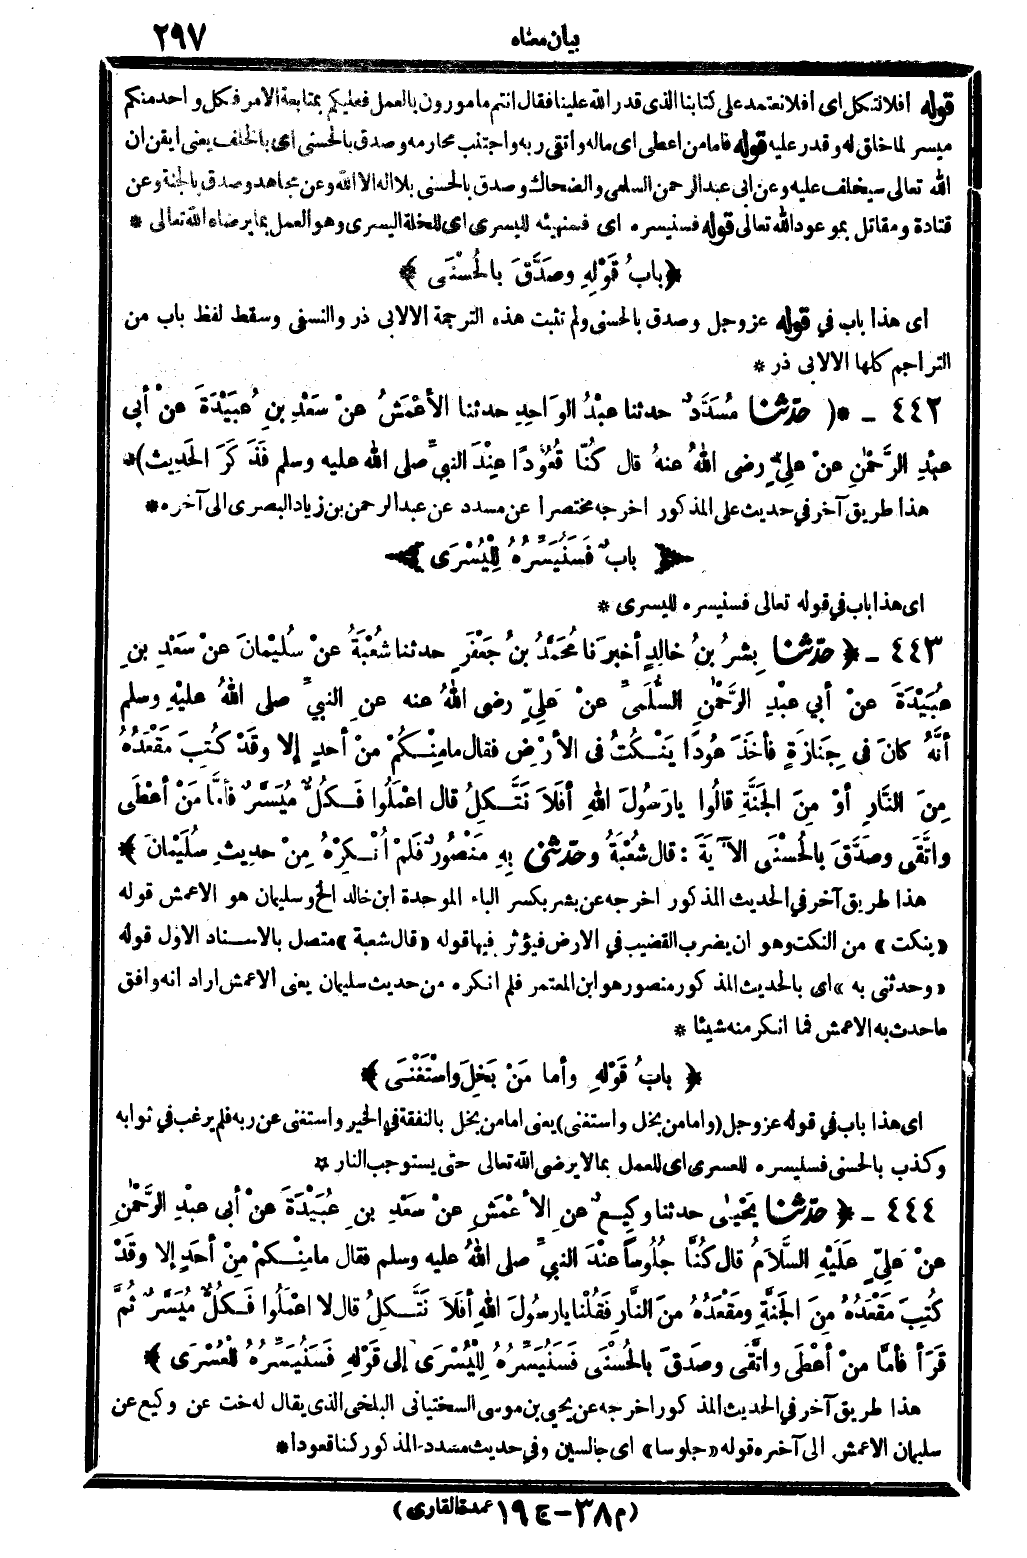 بيان معناه ٢٩٧
قوله أفلا نتكل اى أفلا نعتمد على كتابنا الذى قدر الله علينا فقال انتم مأمورون بالعمل فعليكم بمتابعة الامر فكل واحد منكم
ميسر لما خلق له وقدر عليه قوله فاما من اعطى اى ماله واتقى ربه واجتنب محارمه وصدق بالحسنى اى بالخلف يعنى ايقن ان
الله تعالى سيخلف عليه وعن ابى عبد الرحمن السلمى والضحاك وصدق بالحسنى بلا اله الا الله وعن مجاهد وصدق بالجنة وعن
قتادة ومقاتل بموعود الله تعالى قوله فسنيسره اى فسنهيئه لليسرى اى للخلة اليسرى وهو العمل بما يرضاه الله تعالى *
﴿ بابُ قَوْلِهِ وصَدَّقَ بالحُسْنَى ﴾
اى هذا باب في قوله عز وجل وصدق بالحسنى ولم تثبت هذه الترجمة الا لابى ذر والنسفى وسقط لفظ باب من
التراجم كلها الا لابى ذر *
٤٤٢ ـ *( حدّثنا مُسَدَّدٌ حدثنا عبْدُ الوَاحِدِ حدثنا الأعْمَشُ عنْ سَعْدِ بنِ عُبَيْدَةَ عنْ أبي
عبْدِ الرَّحْمٰنِ عنْ علِيٍّ رضى اللهُ عنهُ قال كُنَّا قُعُودًا عِنْدَ النبيِّ صلى الله عليه وسلم فَذَكَرَ الحَدِيثَ )*
هذا طريق آخر في حديث على المذكور اخرجه مختصرا عن مسدد عن عبد الرحمن بن زياد البصرى الى آخره *
﴿ بابٌ فَسَنُيَسِّرُهُ لِلْيُسْرَى ﴾
اى هذا باب في قوله تعالى فسنيسره لليسرى *
٤٤٣ ـ ﴿ حدّثنا بِشْرُ بنُ خالِدٍ أخبرَنا مُحَمَّدُ بنُ جَعْفَرٍ حدثنا شُعْبَةُ عنْ سُلَيْمانَ عنْ سَعْدِ بنِ
عُبَيْدَةَ عنْ أبي عبْدِ الرَّحْمٰنِ السُّلَمىِّ عنْ عَلِيٍّ رضى اللهُ عنه عنِ النبيِّ صلى اللهُ عليْهِ وسلم
أنَّهُ كانَ في جِنازَةٍ فأخَذَ عُودًا يَنْكُتُ في الأرْضِ فقال ما مِنْكُمْ مِنْ أحدٍ إلا وقَدْ كُتِبَ مَقْعَدُهُ
مِنَ النَّارِ أوْ مِنَ الجَنَّةِ قالُوا يارَسُولَ اللهِ أفَلَا نَتَّكِلُ قال اعْمَلُوا فَكُلٌّ مُيَسَّرٌ فأمَّا مَنْ أعْطَى
واتَّقَى وصَدَّقَ بالحُسْنَى الآيَةَ : قال شُعْبَةُ وحدّثني بِهِ مَنْصُورٌ فَلَمْ أُنْكِرْهُ مِنْ حدِيثِ سُلَيْمانَ ﴾
هذا طريق آخر في الحديث المذكور اخرجه عن بشر بكسر الباء الموحدة ابن خالد الخ وسليمان هو الاعمش قوله
«ينكت» من النكت وهو ان يضرب القضيب في الارض فيؤثر فيها قوله «قال شعبة» متصل بالاسناد الاول قوله
«وحدثنى به» اى بالحديث المذكور منصور هو ابن المعتمر فلم انكره من حديث سليمان يعنى الاعمش اراد انه وافق
ما حدث به الاعمش فما انكر منه شيئا *
﴿ بابُ قَوْلِهِ وأما مَنْ بَخِلَ واسْتَغْنَى ﴾
اى هذا باب في قوله عز وجل (واما من بخل واستغنى) يعنى اما من بخل بالنفقة في الخير واستغنى عن ربه فلم يرغب في ثوابه
وكذب بالحسنى فسنيسره للعسرى اى للعمل بما لا يرضى الله تعالى حتى يستوجب النار *
٤٤٤ ـ ﴿ حدّثنا يَحْيىٰ حدثنا وكِيعٌ عنِ الأعْمَشِ عنْ سَعْدِ بنِ عُبَيْدَةَ عنْ أبي عبْدِ الرَّحْمٰنِ
عنْ عَلِيٍّ عَلَيْهِ السَّلَامُ قال كُنَّا جُلُوساً عنْدَ النبيِّ صلى اللهُ عليه وسلم فقال ما مِنْكمْ مِنْ أحَدٍ إلا وقَدْ
كُتِبَ مَقْعَدُهُ مِنَ الجَنَّةِ ومَقْعَدُهُ منَ النَّارِ فَقُلْنا يارسُولَ اللهِ أفَلَا نَتَّكِلُ قال لا اعْمَلُوا فَكُلٌّ مُيَسَّرٌ ثُمَّ
قَرَأ فأمَّا منْ أعْطَى واتَّقَى وصَدقَ بالحُسْنَى فَسَنُيَسِّرُهُ لِلْيُسْرَى إلى قَوْلِهِ فَسَنُيَسِّرُهُ لِلْعُسْرَى ﴾
هذا طريق آخر في الحديث المذكور اخرجه عن يحيى بن موسى السختيانى البلخى الذى يقال له خت عن وكيع عن
سليمان الاعمش الى آخره قوله «جلوسا» اى جالسين وفي حديث مسدد المذكور كنا قعودا *
(م ٣٨ ـ ج ١٩ عمدة القارى)